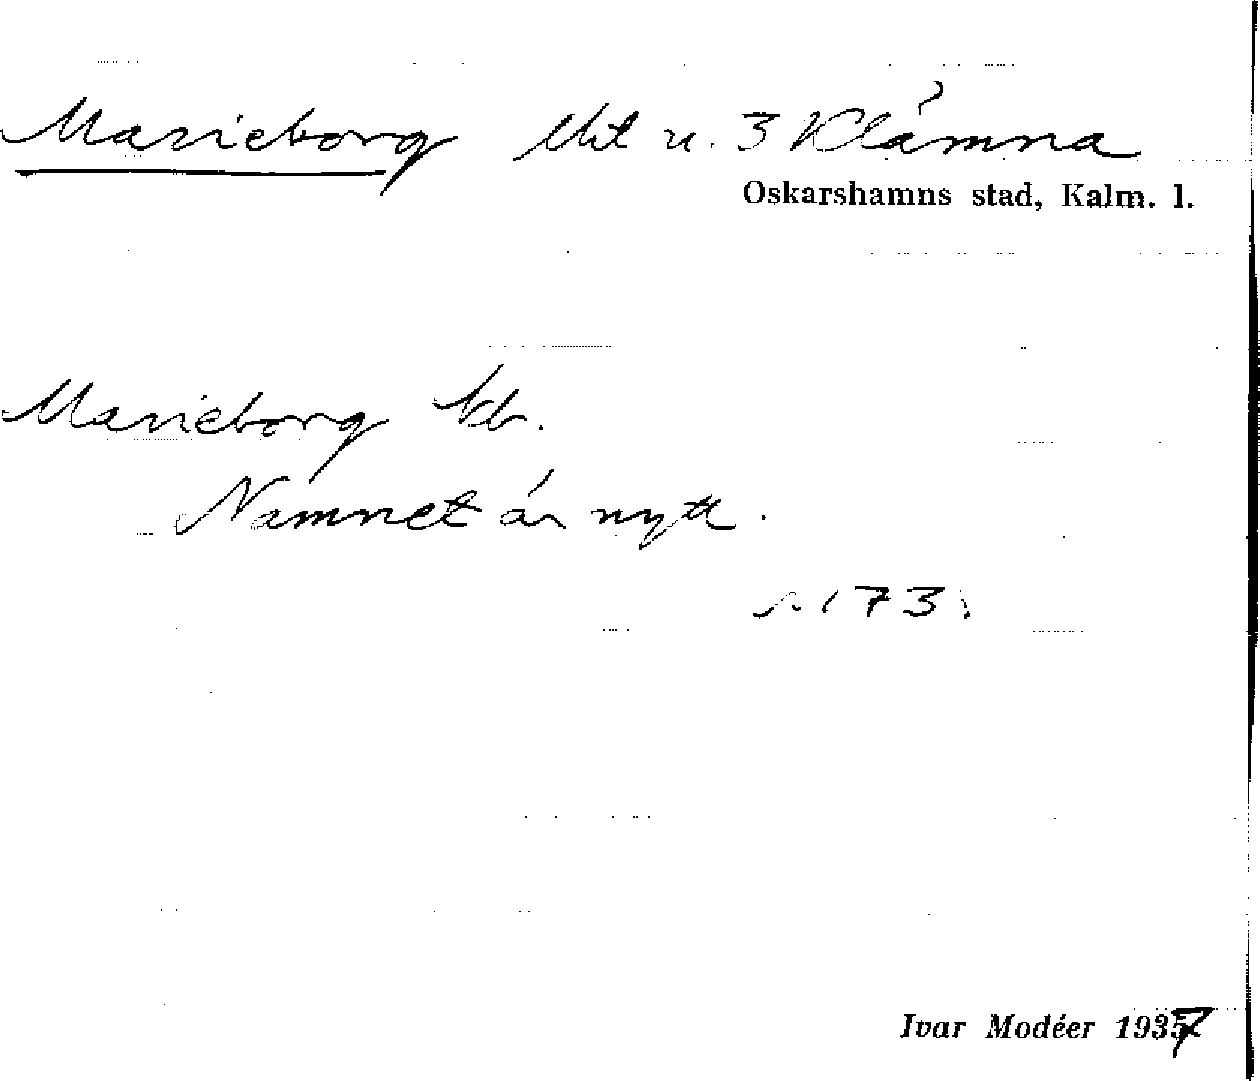 Marieborg lht u. 3 Klämna
Oskarshamns stad, Kalm. l.
Marieborg kb.
Namnet är nytt.
s. 173.
Ivar Modéer 1937